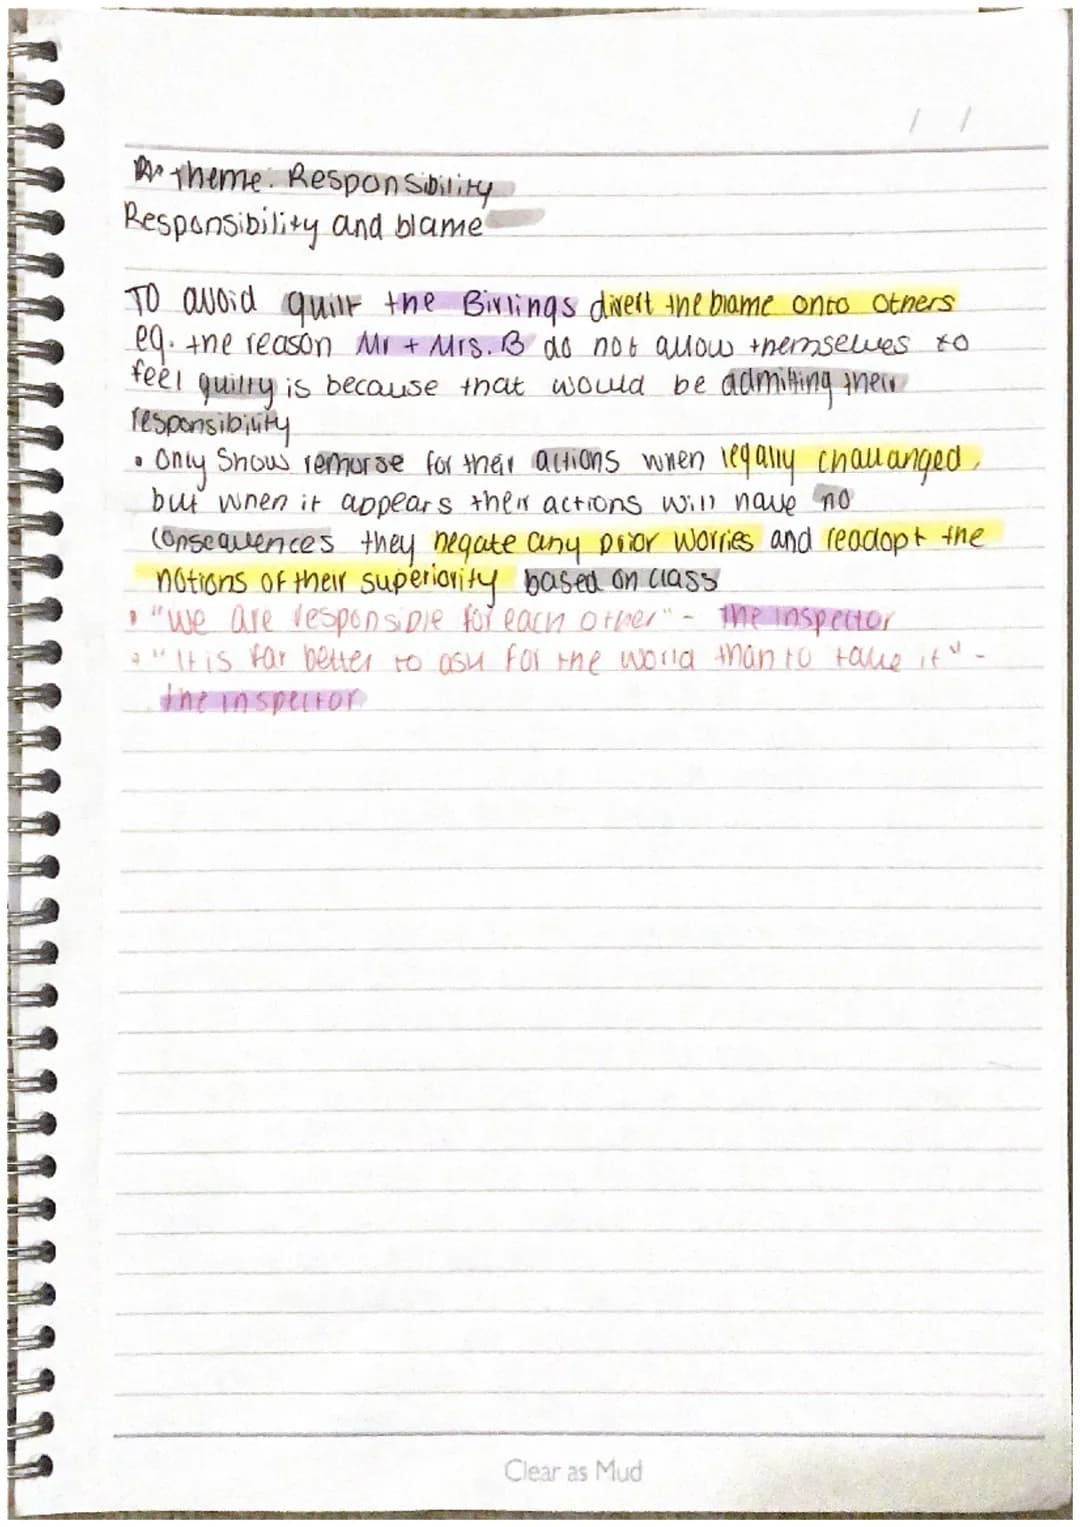 / /
theme: Responsibility
Responsibility and blame
To avoid guilt the Birlings divert the blame onto others
eg. the reason Mr + Mrs. B do not allow themselves to
feel guilty is because that would be admitting their
responsibility
• Only show remorse for their actions when legally challanged,
but when it appears their actions will have no
consequences they negate any prior worries and readopt the
notions of their superiority based on class
• "We are responsible for each other" - The inspector
• "It is far better to ask for the world than to take it" -
the inspector
Clear as Mud